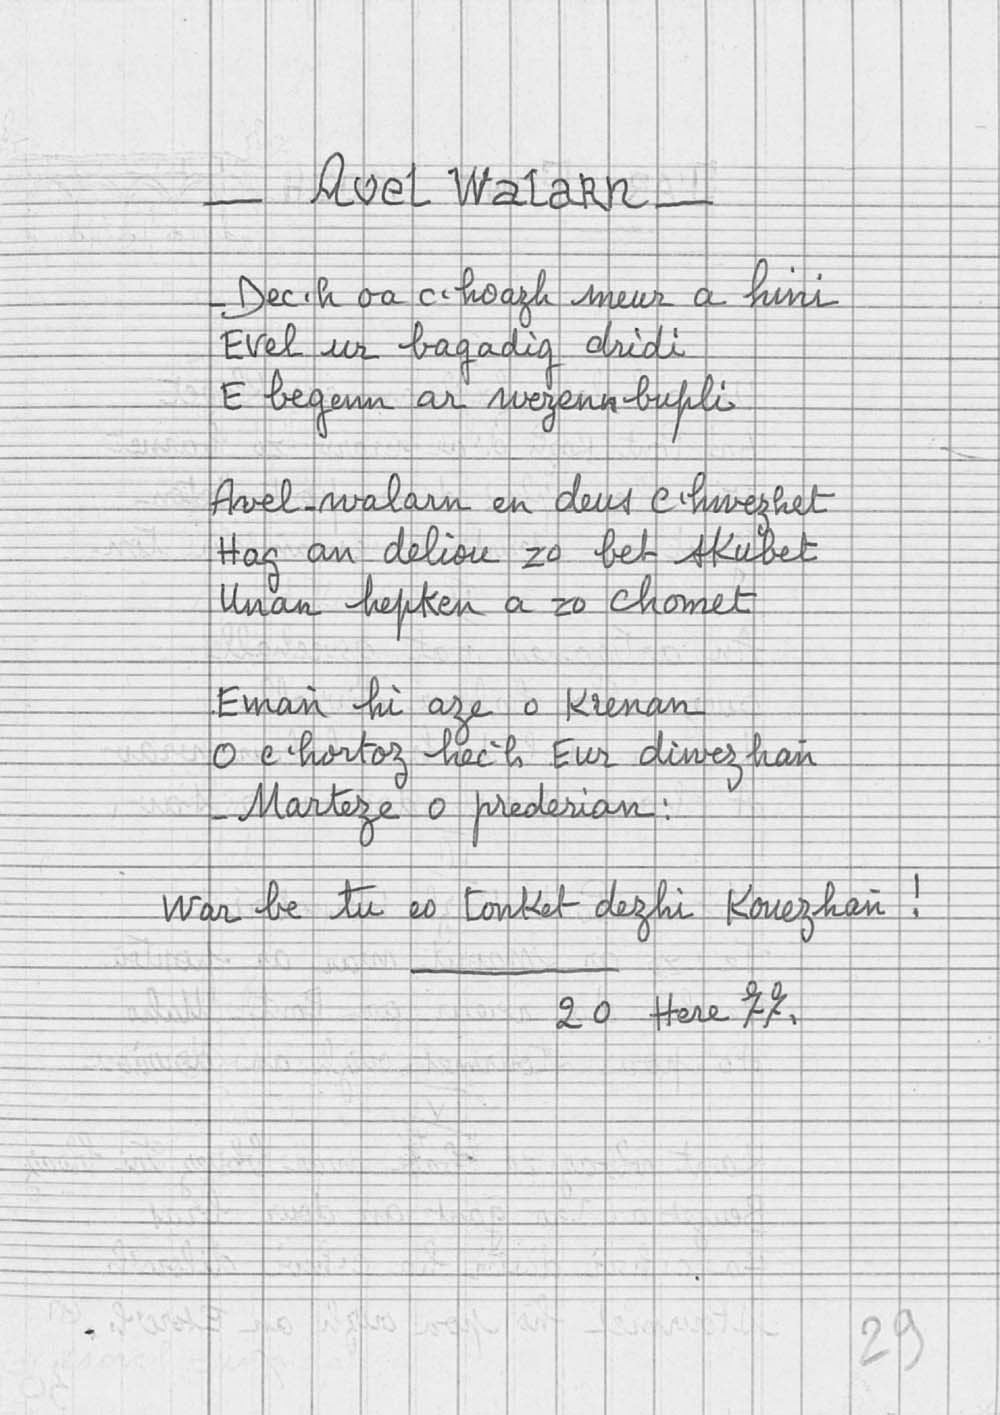 _ Avel Walarn _
_ Dec'h oa c'hoazh meur a hini
Evel ur bagadig dridi
E begenn ar wezenn-bupli
Avel-walarn en deus c'hwezhet
Hag an deliou zo bet skubet
Unan hepken a zo chomet
Emañ hi aze o krenan
O c'hortoz hec'h Eur diwezhañ
_ Marteze o prederian :
War be tu eo tonket dezhi Kouezhañ !
20 Here 77.
29